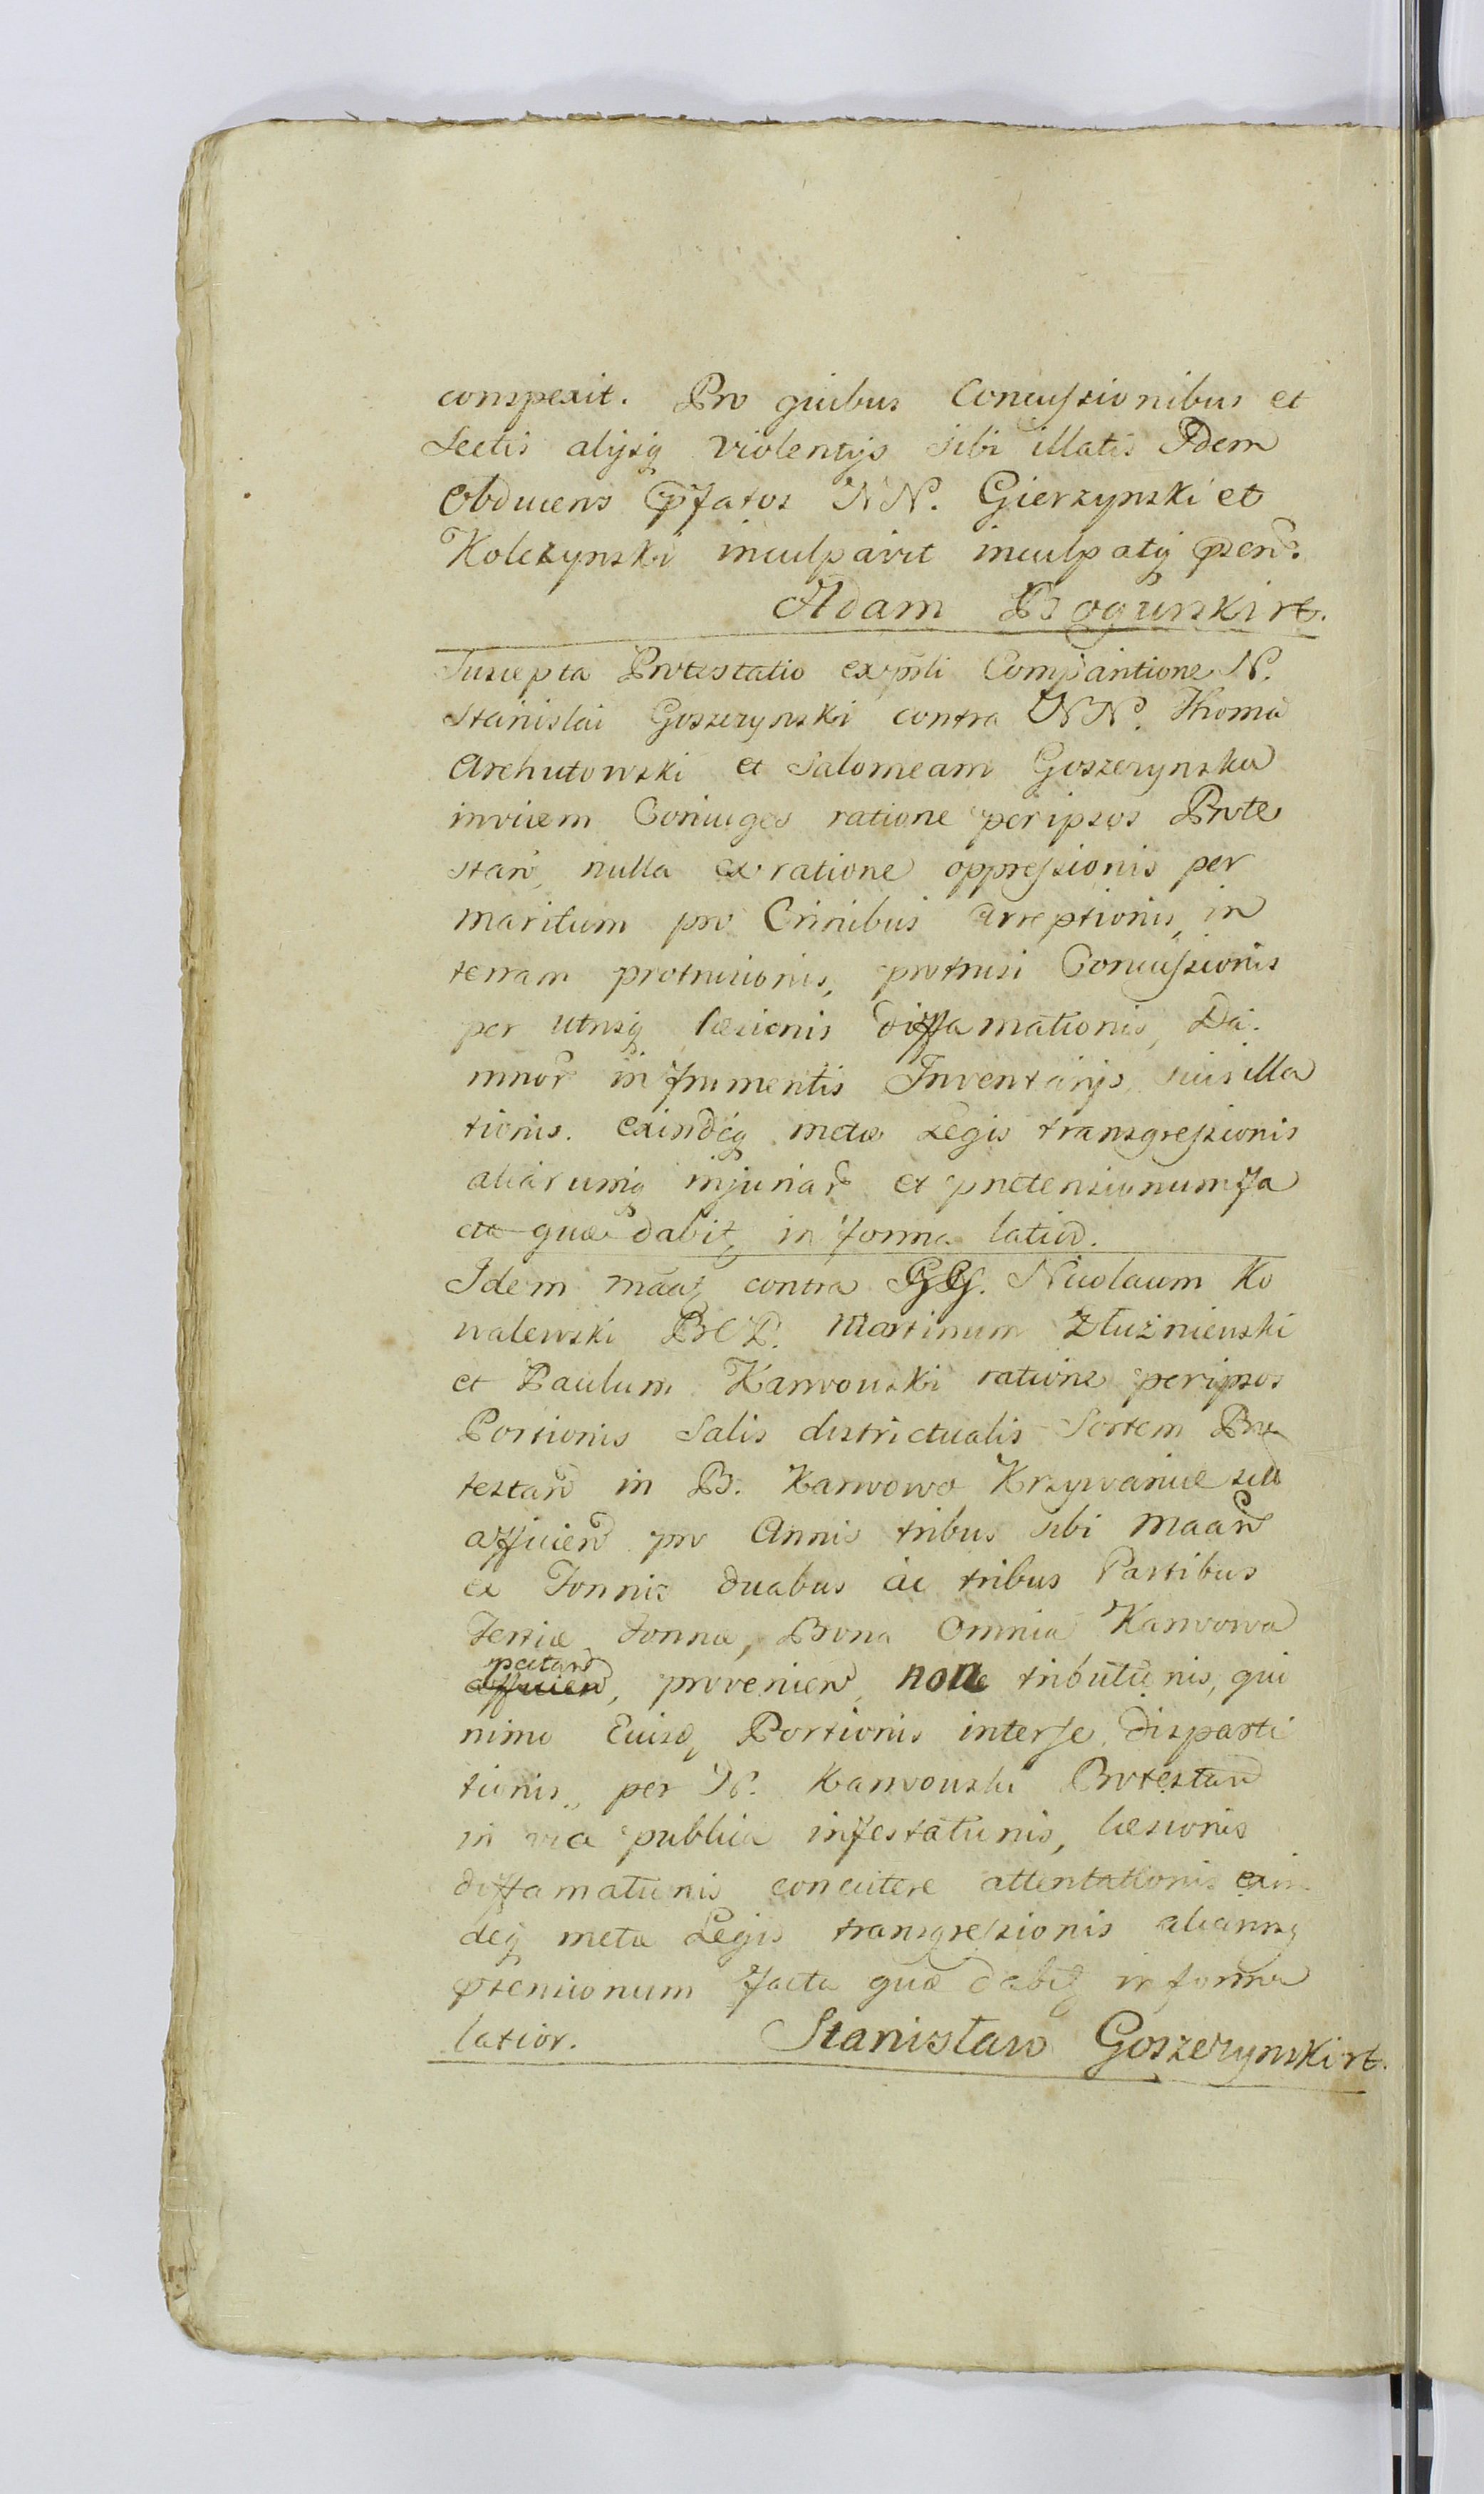 conspexit. Pro quibus Concussionibus et
Sectis alijsq violentijs sibi illatis Idem
Obducens pfatos NN. Gierzynski et
Kolczynski inculpavit inculpatq psen.
Adam Bogurski rt.
Suscepta Protestatio ex psnli Comparitione N.
Stanislai Goszczynski contra NN. Thoma
Archutowski et Salomeam Goszczynska
invicem Coniuges ratione per ipsos Prote
stan, nulla ex ratione oppressionis per
maritum pro Crinibus arreptionis, in
terram protrusionis, protrusi Concussionis
per utrusq læsionis diffamationis, Da
mnor in frumentis Inventarijs suis illa
tionis. exindeq metæ Legis transgressionis
aliarumq injuriar et prætensionum fa
cta quæ dabit, in forma latior.
Idem maa contra GG. Nicolaum Ko
walewski BCP. Martinum Złużniewski
et Paulum Karwowski ratione per ipsos
Portionis Salis districtualis Sortem Pro
testan in B. Karwowo Krzywanice sua
afficien pro Annis tribus sibi maan
ex Tonnis duabus ac tribus Partibus
Tertiæ tonnæ, Bona Omnia Karwowa
spectan
afficien, provenien, non tributionis, qui
nimo Eiusd, Portionis inter se disparti
tionis, per N. Karwowski Protestan
in via publica infestationis, læsionis
diffamationis concutere attentationis exin
deq metæ Legis transgressionis aliarumq
ptensionum facta quæ dabit in forma
latior. Stanisław Goszczynski rt.